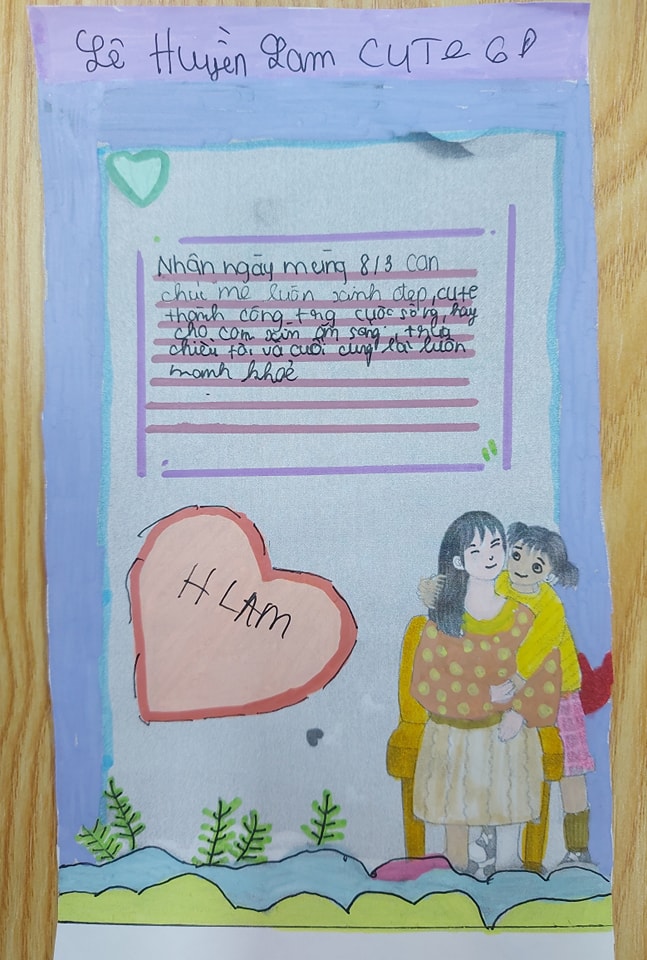 Lê Huyền Lam CUTE
Nhận ngày mừng 8/3 con
chúc mẹ luôn xinh đẹp, cute
thành công trg cuộc sống, hãy
cho con xin ăn sáng, trưa
chiều tối và cuối cùng là luôn
mạnh khoẻ
H LAM